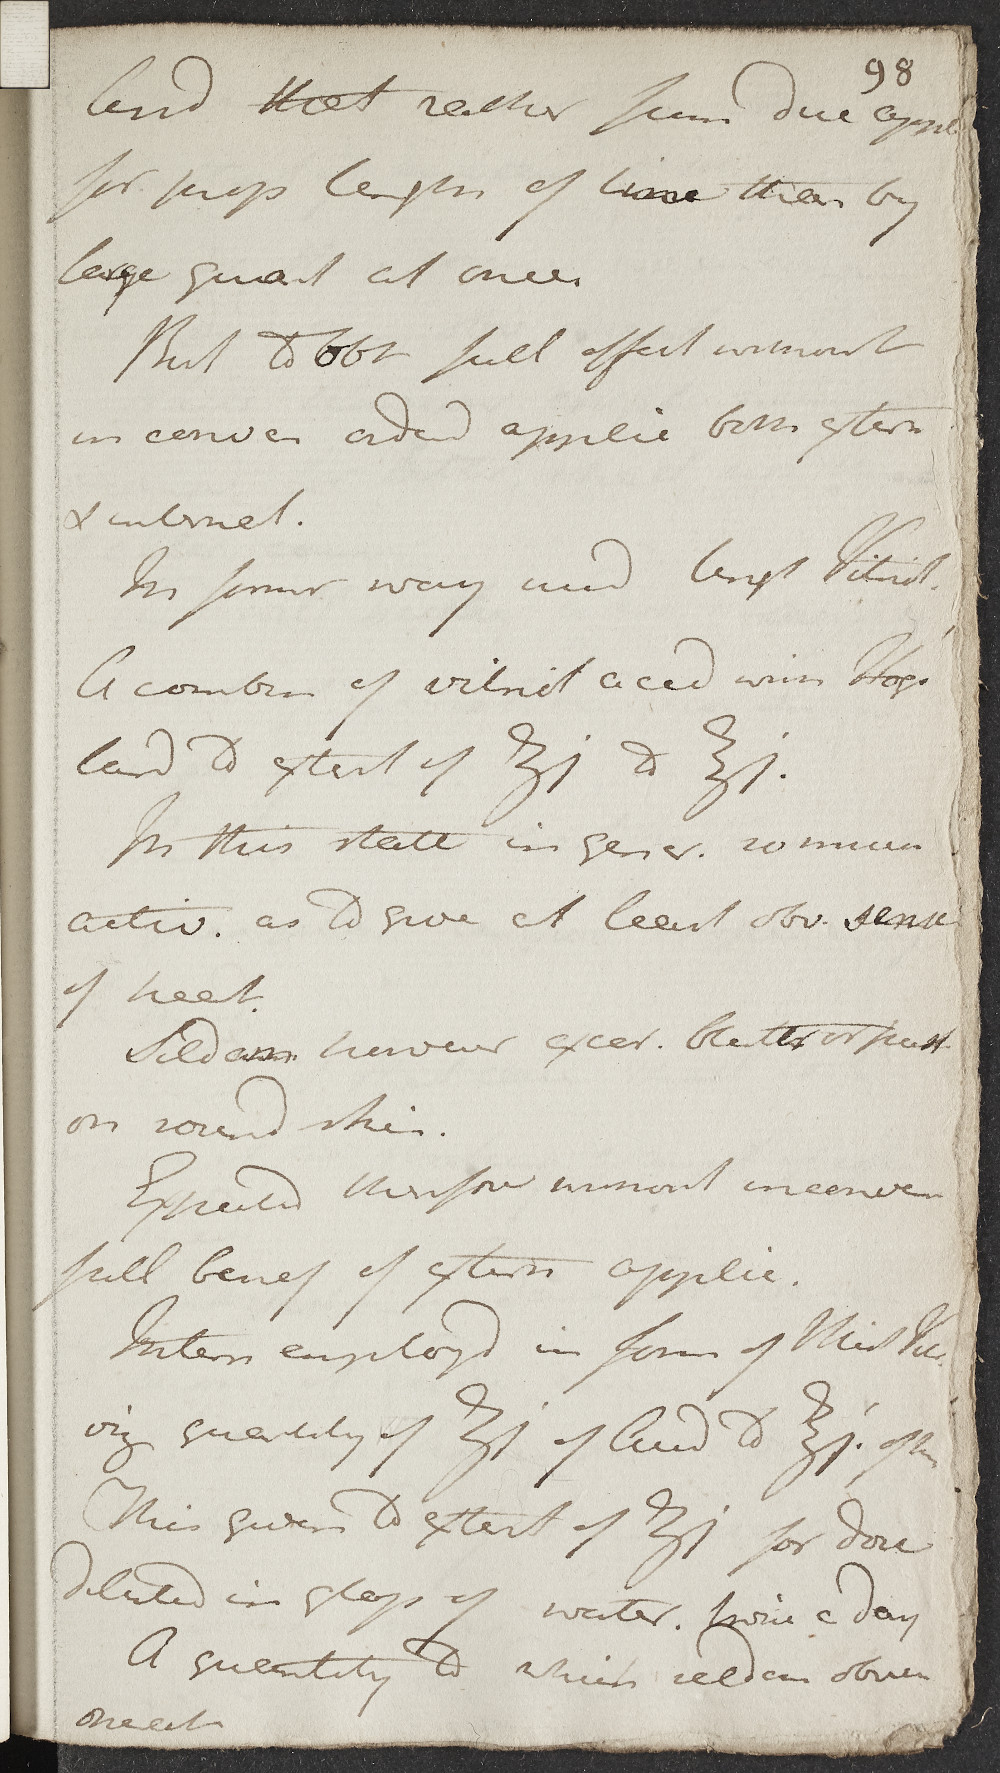 98
and that rather from due appl
for prop length of time than by
large quant at once
But to obt full effect without
inconven advd applic both extern
& internal.
In former way used Ungt Vitriol.
A combin of vitriol acid with Hogs
lard to extent of ʒj to ℥j.
In this state in gener. so much
activ. as to give at least obv. sense
of heat.
Seldom however excor. blister or pust
on sound skin.
Expected therefore without inconven
full benef of extern applic.
Intern employd in form of Mist Vitr
viz quantity of ʒj of Acid to ℥j. of
This given to extent of ʒj for dose
diluted in glass of water. twice a day
A quantity to which seldom obven